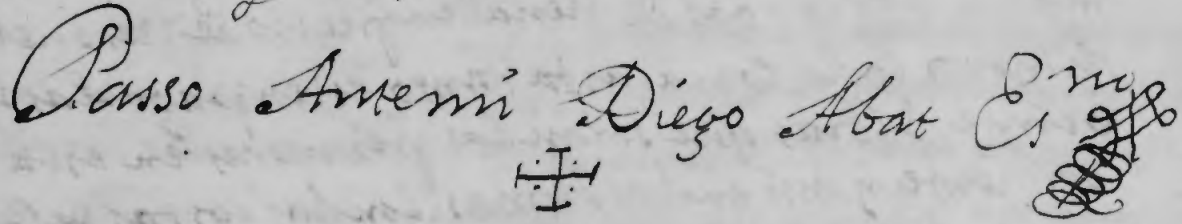 Passo Antemi Diego Abat Esno